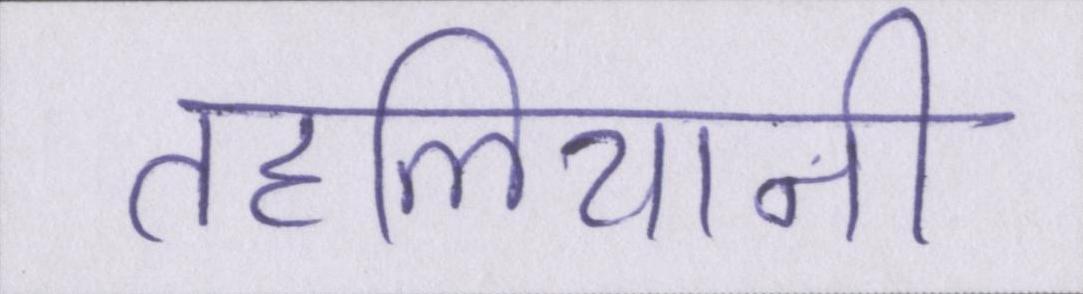 तहलियानी